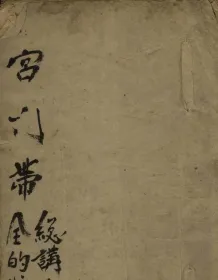 宮门帶
總講
全的